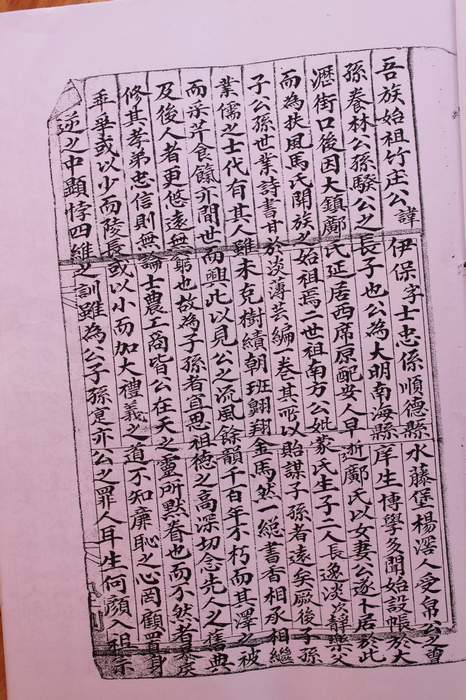 吾族始祖竹庄公諱伊保字士忠係順德縣水藤堡楊滘人受帛公曾
孫養林公孫騤公之長子也公為大明南海縣庠生博學多聞始設帳於大
瀝街口後因大鎮鄺氏延居西席原配安人早逝鄺氏以女妻公遂卜居於此
而為扶風馬氏開族之始祖焉二世祖南方公妣蒙氏生子二人長逸淡次靜樂父
子公孫世業詩書甘於淡薄芸編一卷其所以貽謀子孫者遠矣厥後子孫
業儒之士代有其人雖未克樹績朝班翺翔金馬然一絕書香相承相繼
而采芹食餼亦間世而興此以見公之流風餘韻千百年不朽而其澤之被
及後人者更悠遠無窮也故為子孫者宜思祖德之高深切念先人之舊典
修其孝弟忠信則無論士農工商皆公在天之靈所默眷也而不然者
乖華或以少而陵長或以小而加大禮義之道不知廉恥之心罔顧置身
逆之中顯悖四維之訓雖為公子孫寔亦公之罪人耳生何顏入祖宗